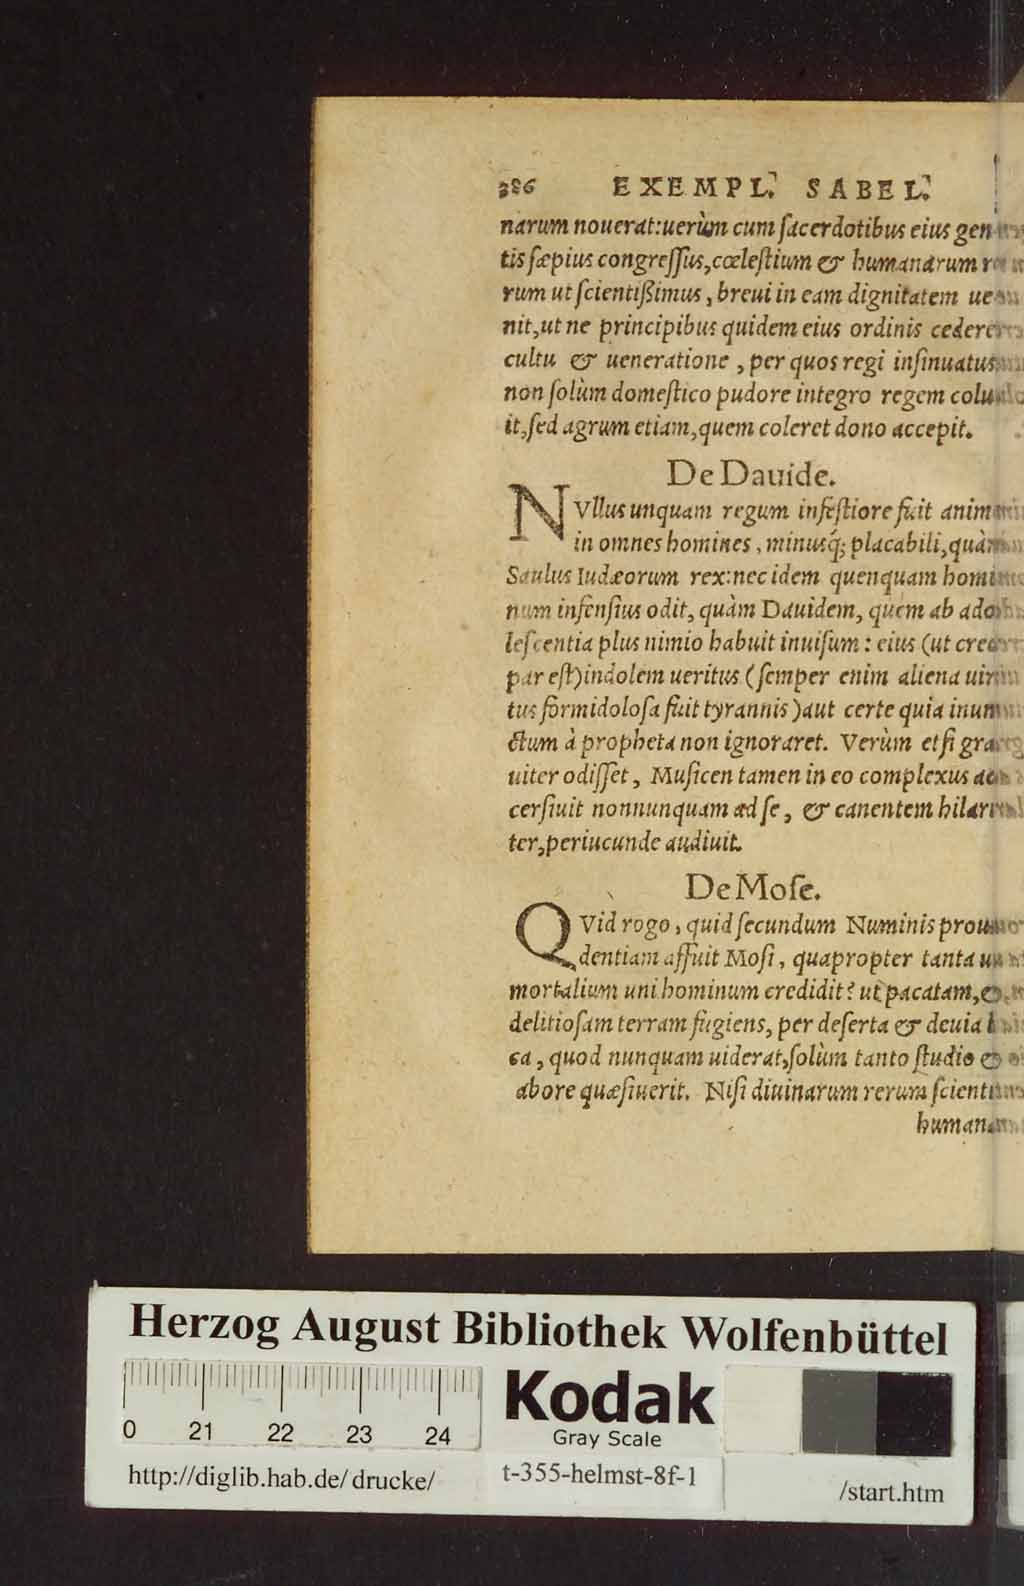 386 EXEMPL. SABEL.
narum nouerat:uerùm cum ſacerdotibus eius gen
tis ſæpius congreſſus,cœleſtium & humanarum re
rum ut ſcientiſſimus, breui in eam dignitatem ue
nit,ut ne principibus quidem eius ordinis cederet
cultu & ueneratione, per quos regi inſinuatus
non ſolùm domeſtico pudore integro regem colu
it,ſed agrum etiam,quem coleret dono accepit.
De Dauide.
NVllus unquam regum infeſtiore fuit animo
in omnes homines, minusq́; placabili,quàm
Saulus Iudæorum rex:nec idem quenquam homi
num infenſius odit, quàm Dauidem, quem ab ado
leſcentia plus nimio habuit inuiſum: eius (ut credere
par eſt)indolem ueritus (ſemper enim aliena uir
tus formidoloſa fuit tyrannis)aut certe quia inun
ctum à propheta non ignoraret. Verùm etſi gra
uiter odiſſet, Muſicen tamen in eo complexus ac
cerſiuit nonnunquam ad ſe, & canentem hilari
ter,periucunde audiuit.
De Moſe.
QVid rogo, quid ſecundum Numinis proui
dentiam affuit Moſi, quapropter tanta
mortalium uni hominum credidit? ut pacatam,&
delitioſam terram fugiens, per deſerta & deuia l
ca, quod nunquam uiderat,ſolùm tanto ſtudio &
abore quæſiuerit. Niſi diuinarum rerum ſcienti
humanarum
Herzog August Bibliothek Wolfenbüttel
0 21 22 23 24
Kodak
Gray Scale
http://diglib.hab.de/drucke/
t-355-helmst-8f-1
/start.htm